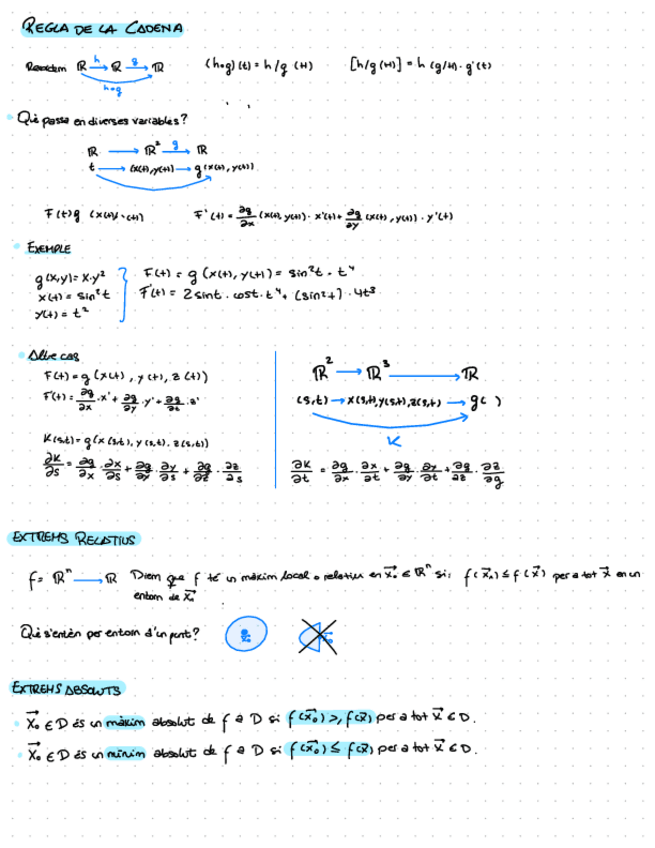 REGLA DE LA CADENA
Recordem ℝ —h→ ℝ —g→ ℝ (h∘g)(t) = h(g(t)) [h(g(t))] = h(g(t))·g'(t)
h∘g
Què passa en diverses variables?
ℝ → ℝ² —g→ ℝ
t → (x(t), y(t)) → g(x(t), y(t))
F(t)g (x(t), y(t)) F'(t) = ∂g/∂x (x(t), y(t)) · x'(t) + ∂g/∂y (x(t), y(t)) · y'(t)
EXEMPLE
g(x,y) = x·y² } F(t) = g(x(t), y(t)) = sin²t · t⁴
x(t) = sin²t F'(t) = 2sint · cost · t⁴ + (sin²t) · 4t³
y(t) = t²
Altre cas
F(t) = g(x(t), y(t), z(t))
F'(t) = ∂g/∂x · x' + ∂g/∂y · y' + ∂g/∂t · z'
K(s,t) = g(x(s,t), y(s,t), z(s,t))
∂K/∂s = ∂g/∂x · ∂x/∂s + ∂g/∂y · ∂y/∂s + ∂g/∂z · ∂z/∂s
ℝ² → ℝ³ → ℝ
(s,t) → x(s,t), y(s,t), z(s,t) → g( )
K
∂K/∂t = ∂g/∂x · ∂x/∂t + ∂g/∂y · ∂y/∂t + ∂g/∂z · ∂z/∂g
EXTREMS RELATIUS
f = ℝⁿ → ℝ Diem que f té un màxim local o relatiu en x⃗₀ ∈ ℝⁿ si: f(x⃗₀) ≤ f(x⃗) per a tot x⃗ en un
entorn de x⃗₀
Què s'entén per entorn d'un punt?
EXTREMS ABSOLUTS
x⃗₀ ∈ D és un màxim absolut de f a D si f(x⃗₀) ≥ f(x⃗) per a tot x⃗ ∈ D.
x⃗₀ ∈ D és un mínim absolut de f a D si f(x⃗₀) ≤ f(x⃗) per a tot x⃗ ∈ D.